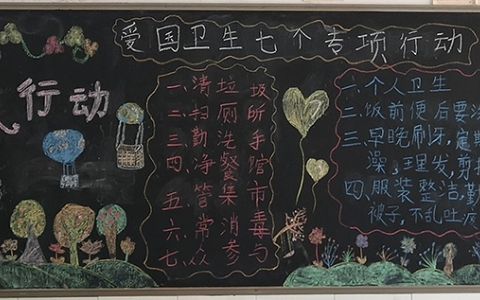 爱国卫生七个专项行动
行动
一、清垃圾
二、扫厕所
三、勤洗手
四、净餐馆
五、管集市
六、常消毒
七、众参与
一、个人卫生
二、饭前便后要洗
三、早晚刷牙,定期
澡,理发,剪
四、服装整洁,勤
被子,不乱吐痰